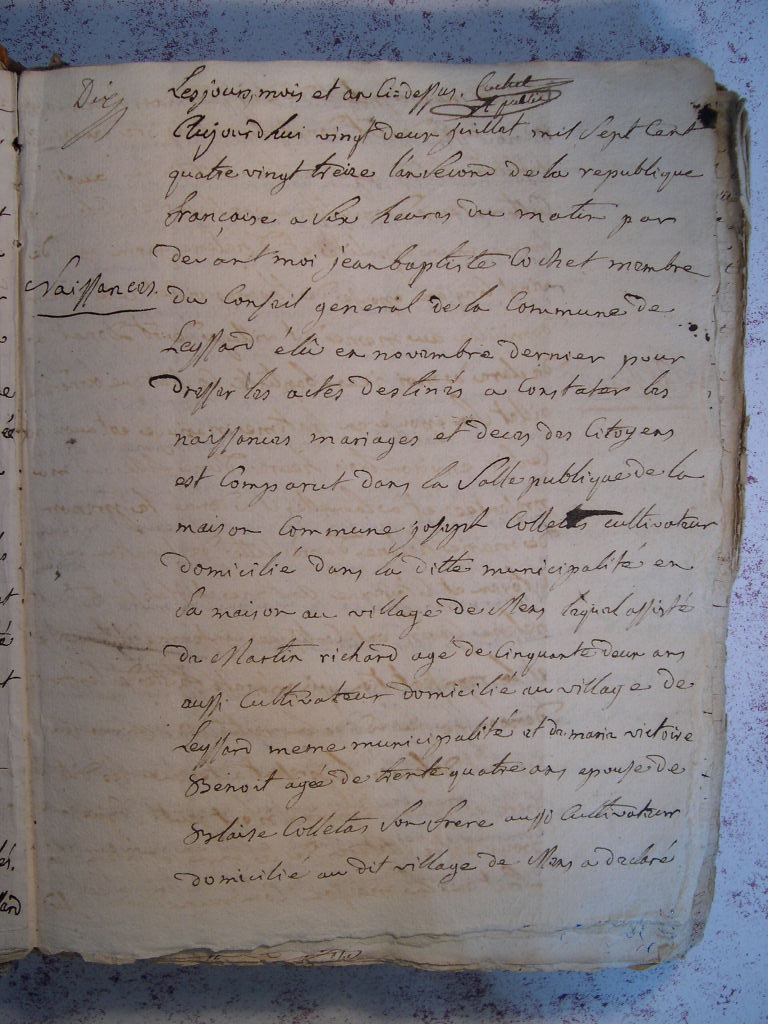 Dix
Les jours, mois et an Ci=dessus. Cochet
Aujourdhui vingt deux juillet mil Sept Cent
quatre vingt treize l'an Second de la republique
françoise a Six heures du matin par
devant moi jean baptiste Cochet membre
Naissances.
du Conseil general de la Commune de
Leyssard élû en novembre dernier pour
dresser les actes destinés a Constater les
naissances mariages et deces des Citoyens
est Comparut dans la Salle publique de la
maison Commune joseph Colletas cultivateur
domicilié dans la ditte municipalité en
Sa maison au village de Mens lequel assisté
de Martin richard agé de Cinquante deux ans
aussi Cultivateur domicilié au village de
Leyssard meme municipalité et de marie victoire
Benoit agée de trente quatre ans epouse de
Blaise Colletas Son frere aussi Cultivateur
domicilié au dit village de Mens a declaré